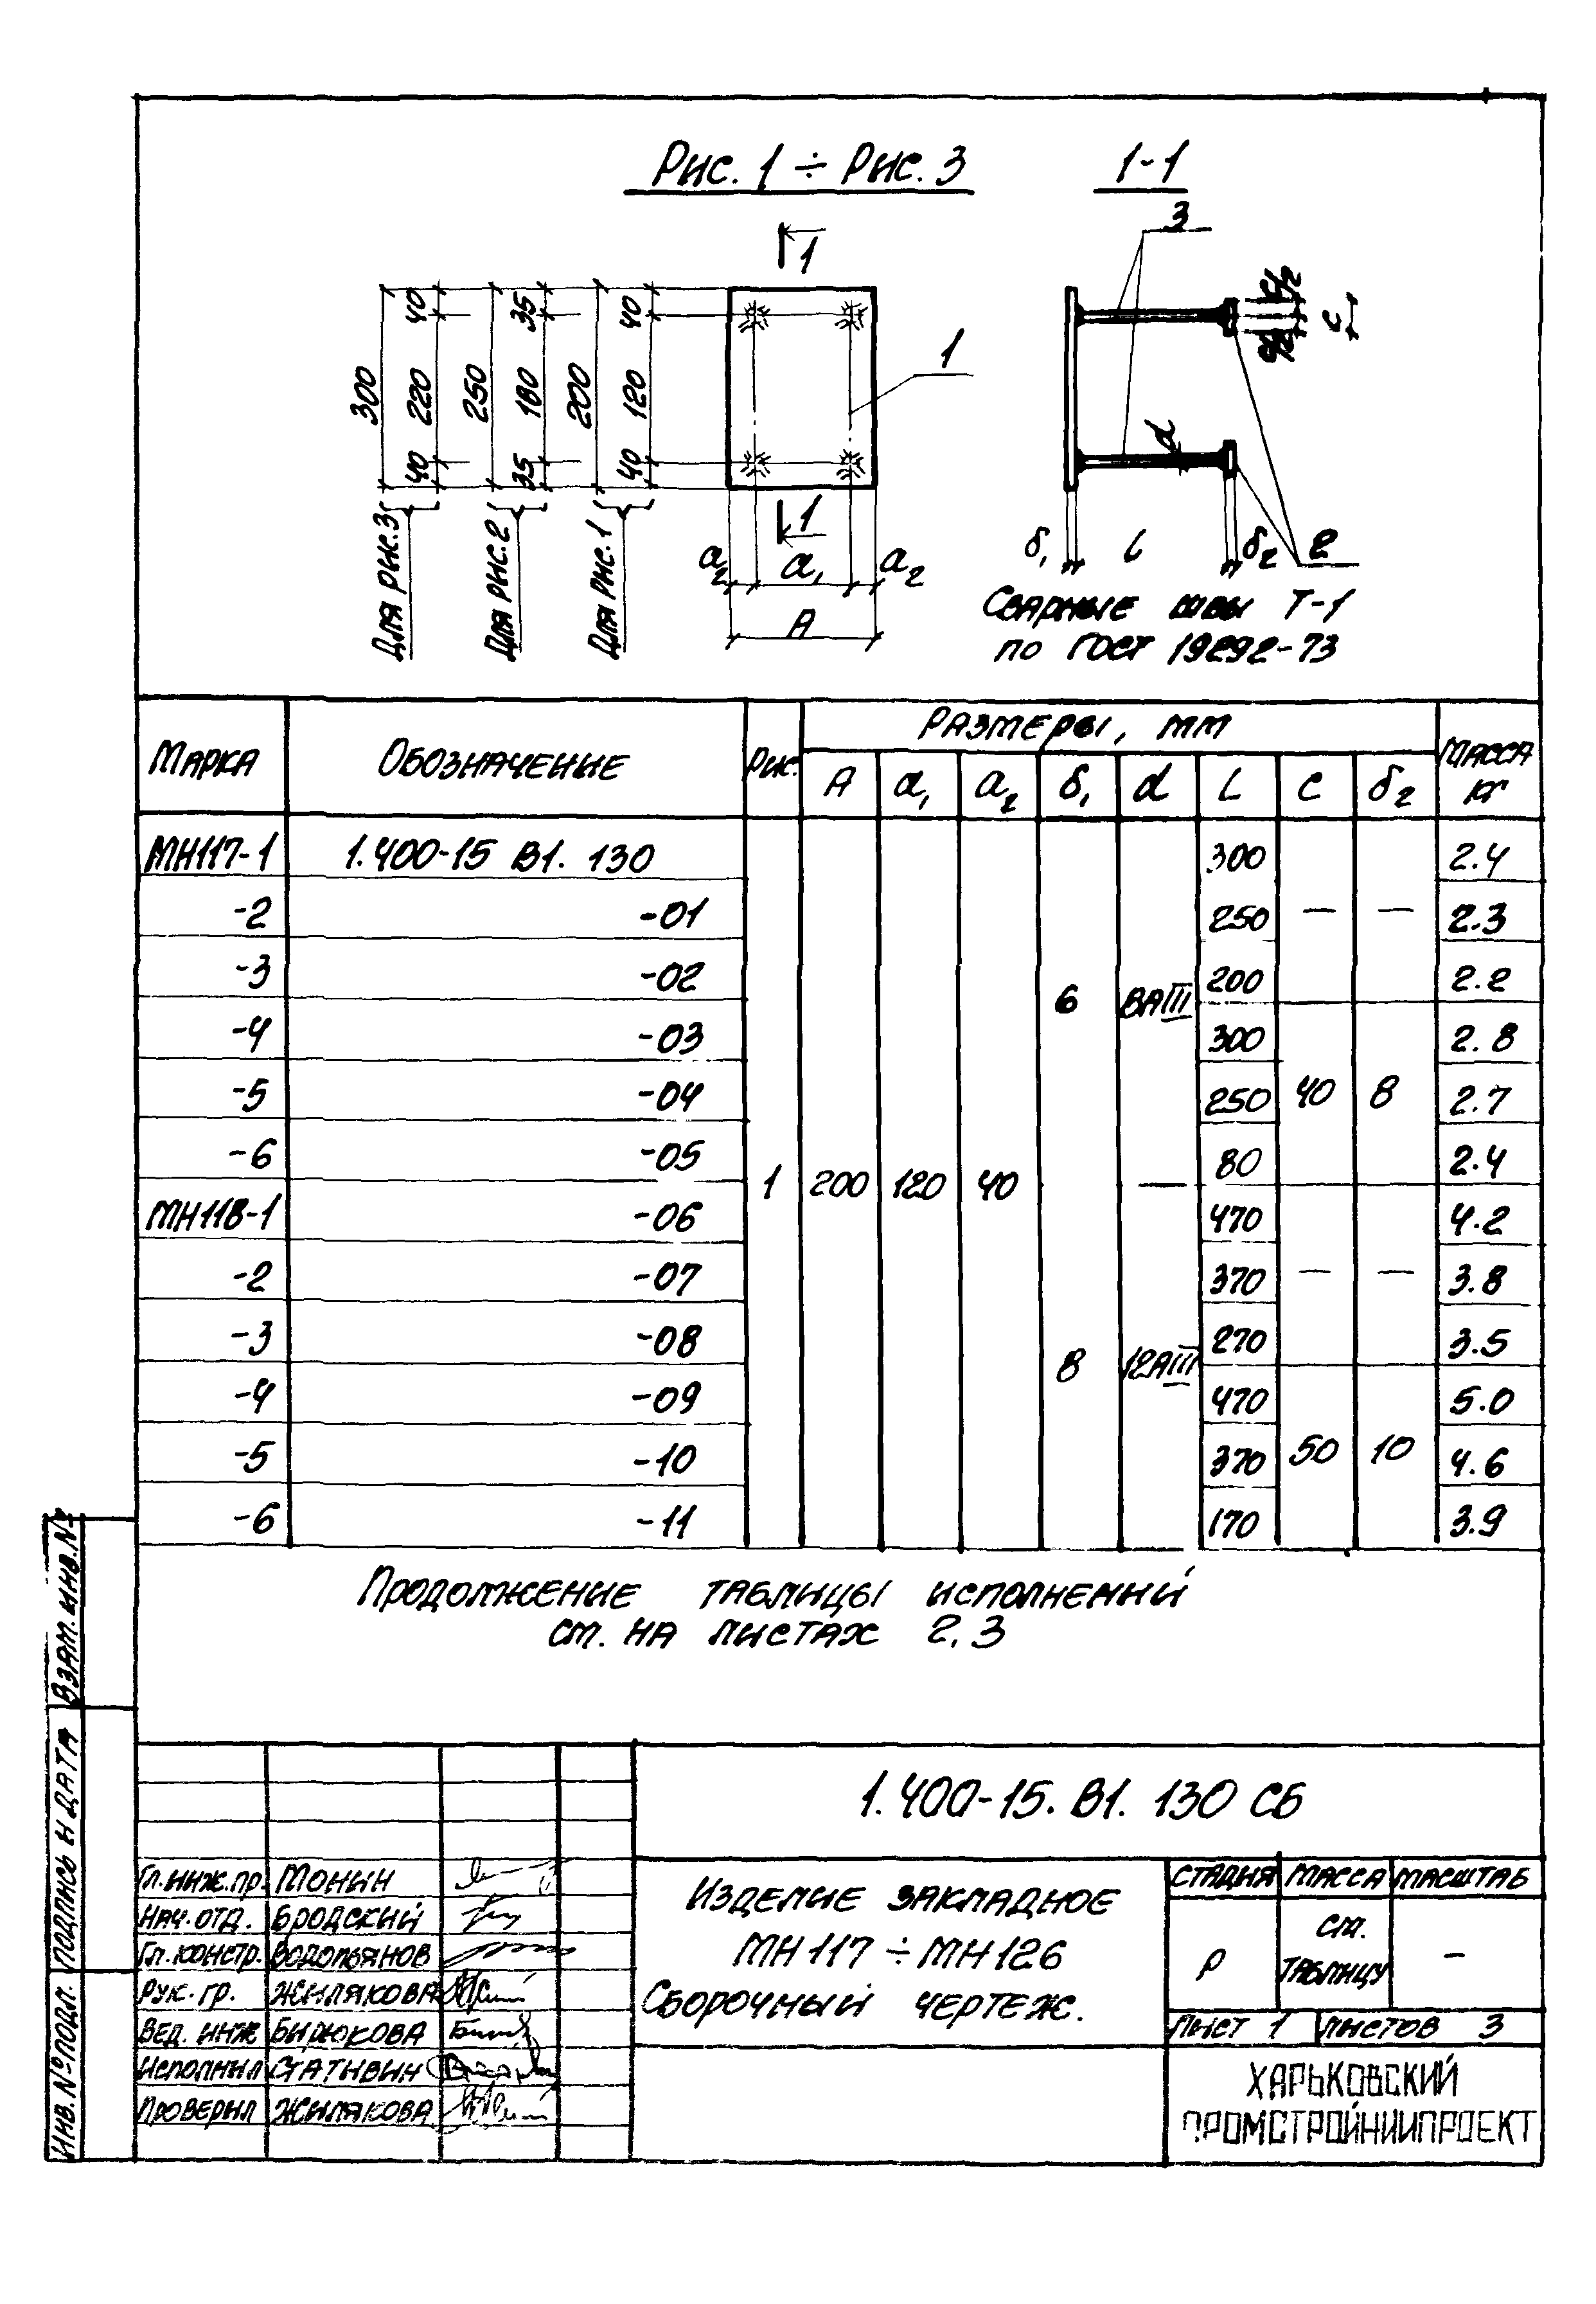 Рис. 1 ÷ Рис. 3
1-1
3
1
1
1
300
40 220 40
250
35 180 35
200
40 120 40
Для рис.3
Для рис.2
Для рис.1
a₂ a₁ a₂
A
c/2
c/2
c
d
δ₁ l δ₂ 2
Сварные швы Т-1
по ГОСТ 19292-73
Марка Обозначение Рис. Размеры, мм Масса кг
A a₁ a₂ δ₁ d L c δ₂
МН117-1 1.400-15 В1. 130 300 2.4
-2 -01 250 — — 2.3
-3 -02 6 8АIII 200 2.2
-4 -03 300 2.8
-5 -04 250 40 8 2.7
-6 -05 80 2.4
1 200 120 40 —
МН118-1 -06 470 4.2
-2 -07 370 — — 3.8
-3 -08 270 3.5
8 12АIII
-4 -09 470 5.0
-5 -10 370 50 10 4.6
-6 -11 170 3.9
Продолжение таблицы исполнений
см. на листах 2, 3
Взам. инв. №
Подпись и дата
Инв. № подл.
1.400-15. В1. 130 СБ
Гл. инж. пр. Монин
Нач. отд. Бродский
Гл. констр. Водопьянов
Рук. гр. Жилякова
Вед. инж Бирюкова
Исполнил Стативин
Проверил Жилякова
Изделие закладное
МН 117 ÷ МН 126
Сборочный чертеж.
Стадия Масса Масштаб
Р см. таблицу —
Лист 1 Листов 3
ХАРЬКОВСКИЙ
ПРОМСТРОЙНИИПРОЕКТ